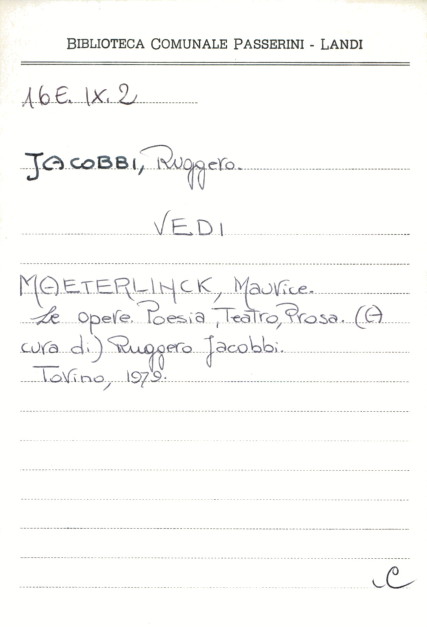 BIBLIOTECA COMUNALE PASSERINI - LANDI
16E. IX. 2
JACOBBI, Ruggero.
VEDI
MAETERLINCK, Maurice.
Le opere. Poesia, Teatro, Prosa. (A
cura di) Ruggero Jacobbi.
Torino, 1979.
C